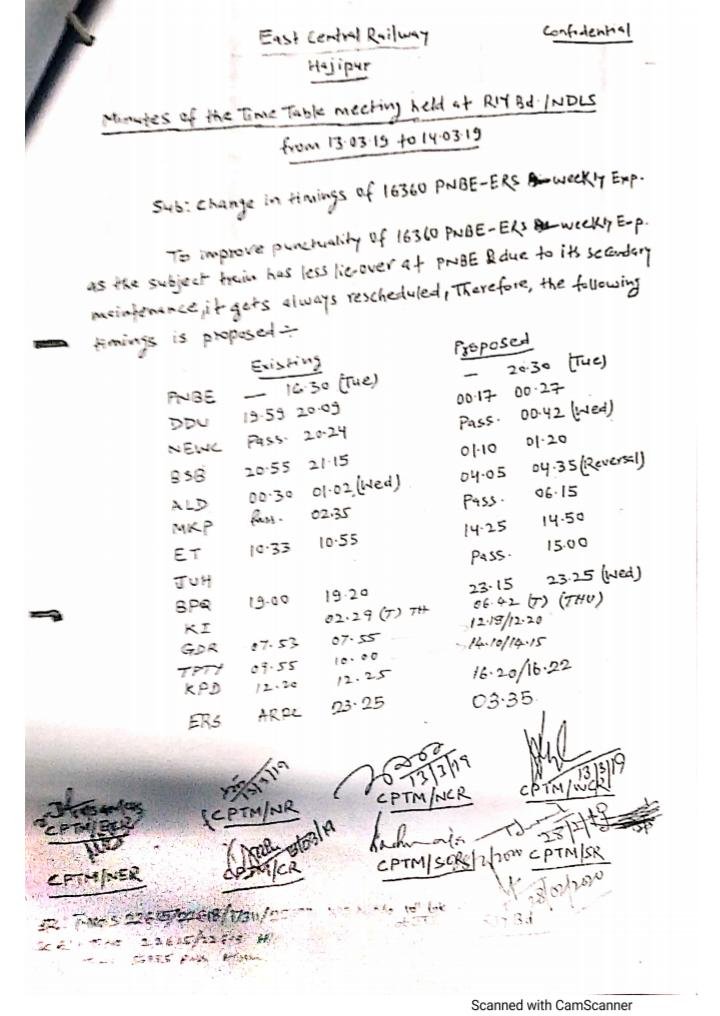 East Central Railway Confedential
Hajipur
Minutes of the Time Table meeting held at RlY Bd./NDLS
from 13.03.19 to 14.03.19
Sub: Change in timings of 16360 PNBE-ERS weekly Exp.
To improve punctuality of 16360 PNBE-ERS weekly Exp.
as the subject train has less lie-over at PNBE & due to its secondary
maintenance, it gets always rescheduled, Therefore, the following
timings is proposed ÷
Existing Proposed
PNBE — 16.30 (Tue) — 20.30 (Tue)
DDU 19.59 20.09 00.17 00.27
Pass. 20.24 Pass. 00.42 (Wed)
BSB 20.55 21.15 01.10 01.20
ALD 00.30 01.02 (Wed) 04.05 04.35 (Reversal)
MKP Pass. 02.35 Pass. 06.15
ET 10.33 10.55 14.25 14.50
JUH Pass. 15.00
BPQ 19.00 19.20 23.15 23.25 (Wed)
KI 02.29 (T) TH 06.42 (T) (THU)
GDR 07.53 07.55 12.18/12.20
TPTY 09.55 10.00 14.10/14.15
KPD 12.20 12.25 16.20/16.22
ERS 23.25 03.35
13/3/19 13/3/19
CPTM/NR CPTM/NCR CPTM/WCR
CPTM/NER CPTM/CR CPTM/SCR CPTM/SR
Scanned with CamScanner